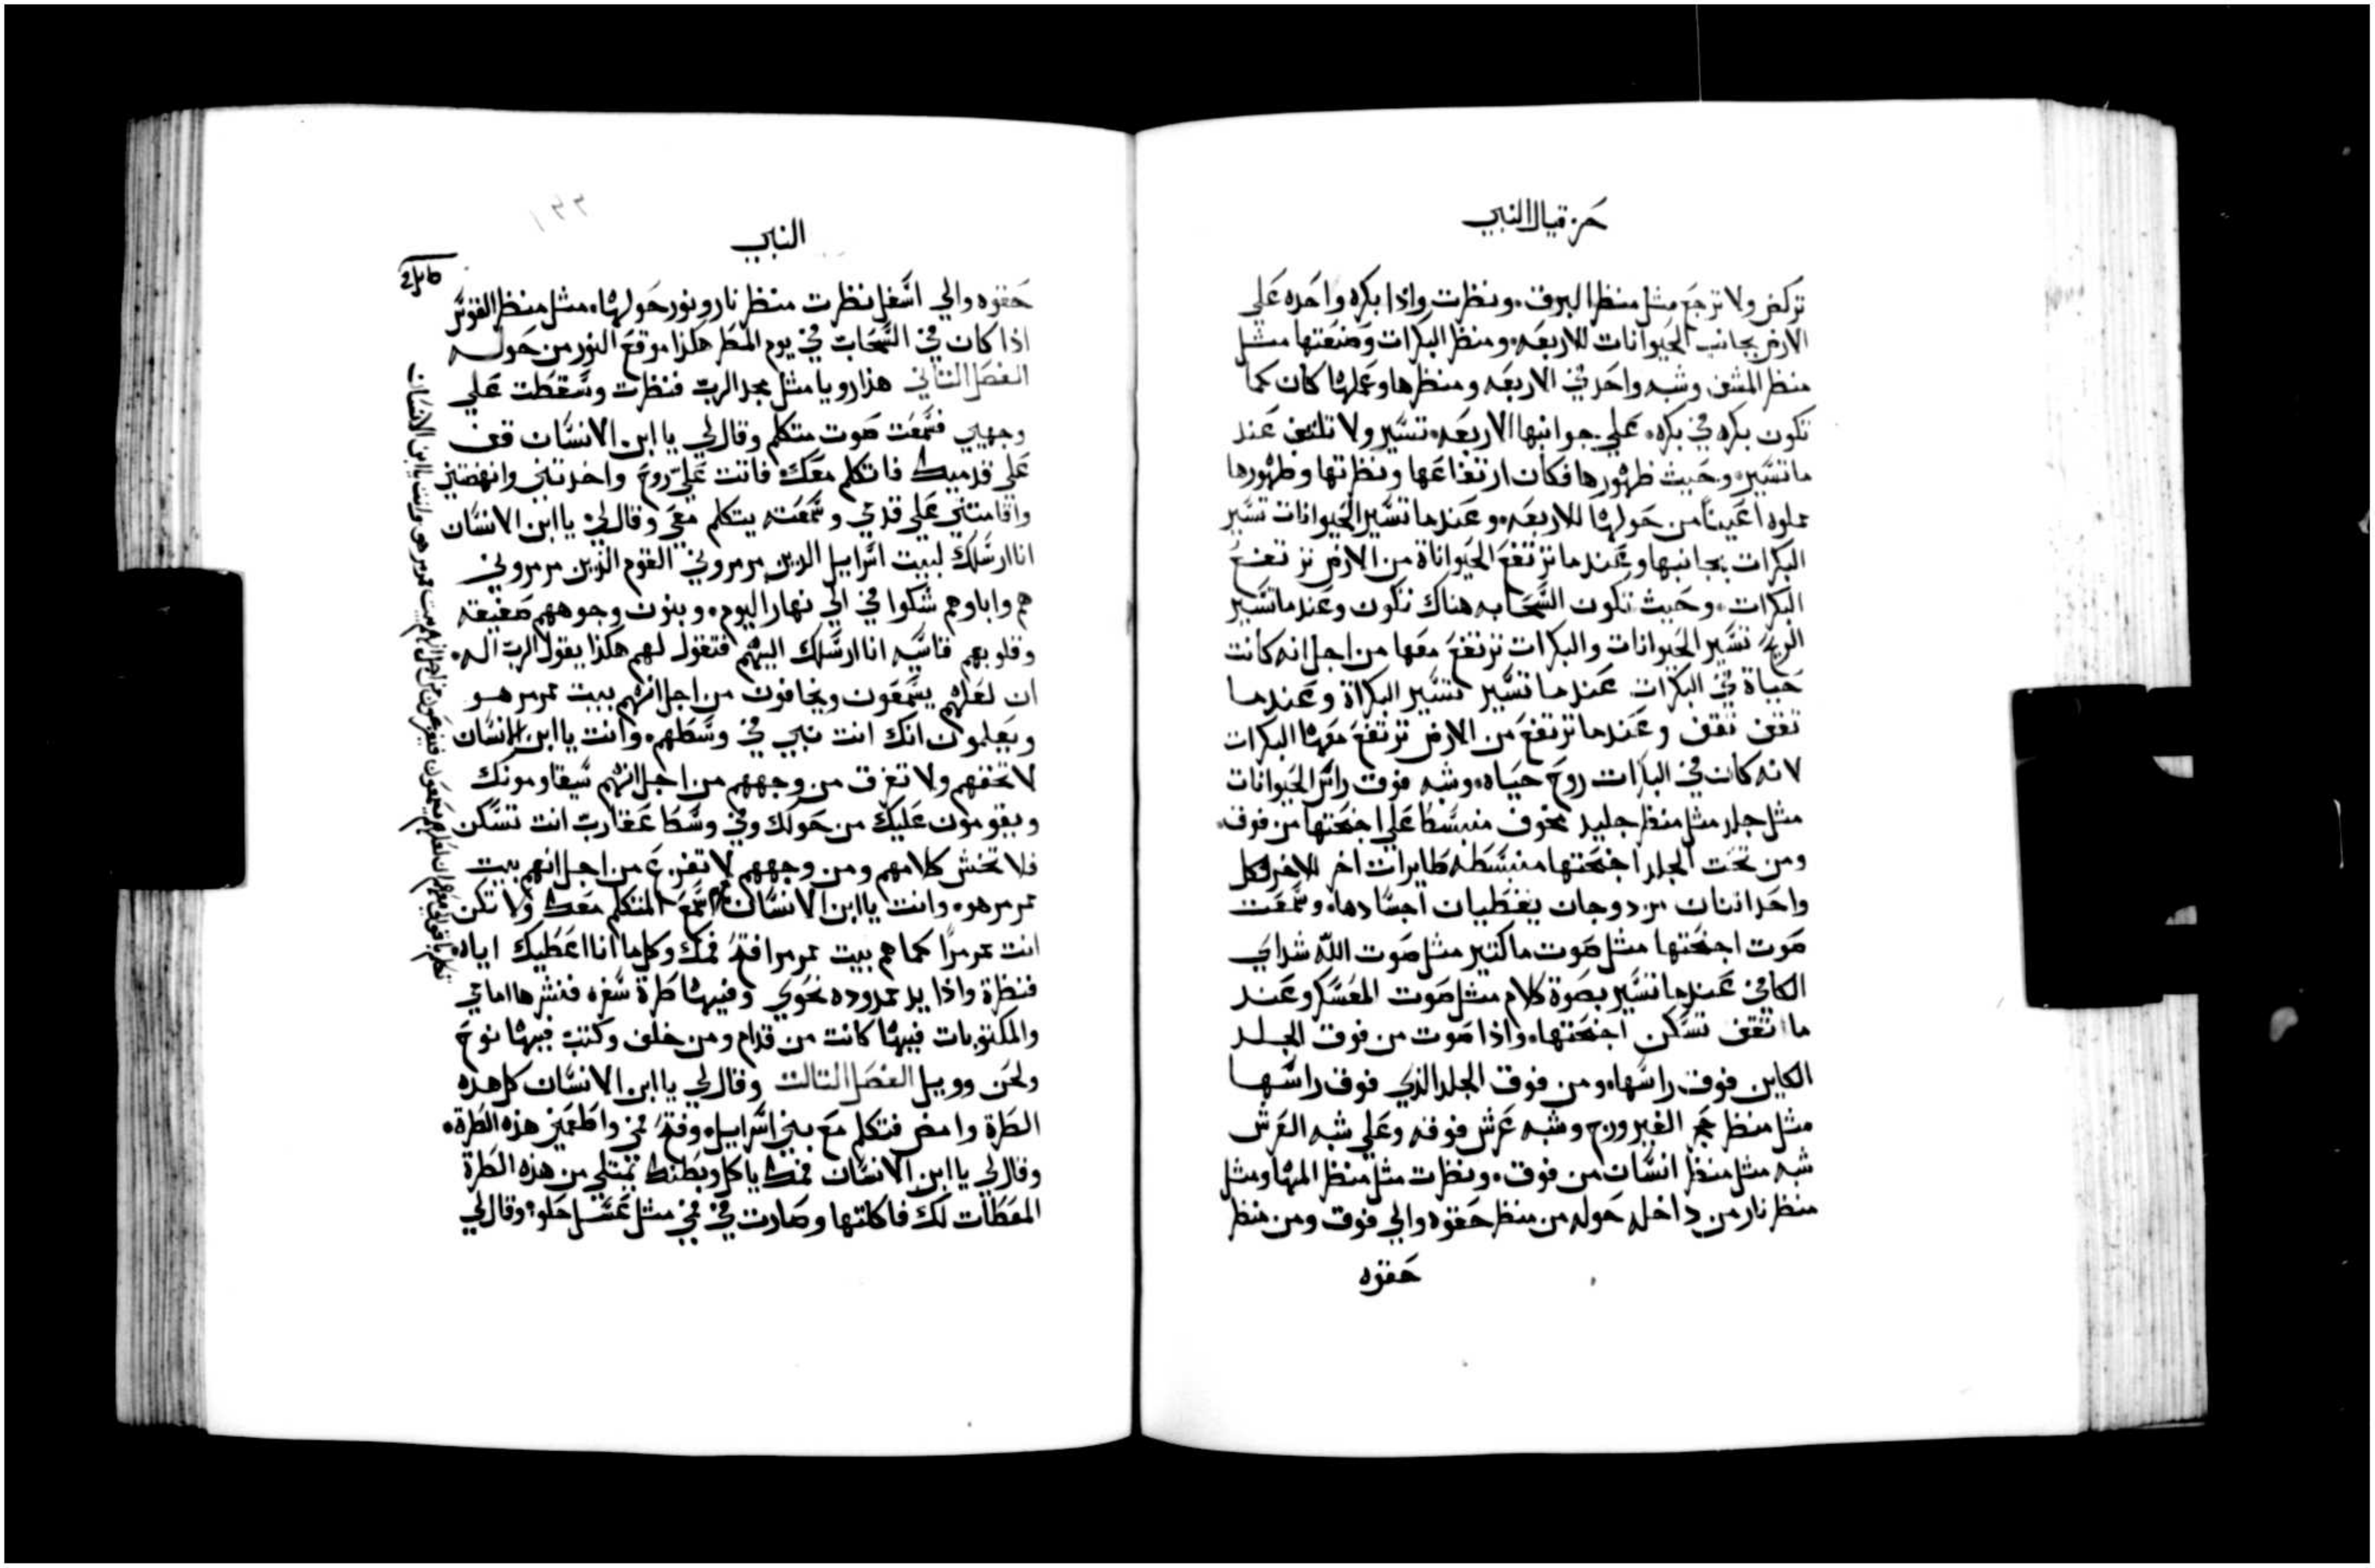 حزقيال النبي
تركض ولا ترجع مثل منظر البرق. ونظرت واذا بكره واحده على
الارض بجانب الحيوانات للاربعه. ومنظر البكرات وصنعتها مثل
منظر المشف وشبه واحد في الاربعه ومنظرها وعملها كان كما
تكون بكره في بكره. على جوانبها الاربعه. تسير ولا تلتف عند
ما تسير. وحيث ظهورها فكان ارتفاعها ونظرتها وظهورها
مملوه اعينا من حولها للاربعه. وعندما تسير الحيوانات تسير
البكرات بجانبها وعندما ترتفع الحيواناة من الارض ترتفع
البكرات. وحيث تكون السحابه هناك تكون وعندما تسير
الريح تسير الحيوانات والبكرات ترتفع معها من اجل انه كانت
حياة في البكرات عندما تسير تسير البكراة وعندما
تقف تقف وعندما ترتفع من الارض ترتفع معها البكرات
لانه كان في البكرات روح حياه. وشبه فوق راس الحيوانات
مثل جلد مثل منظر جليد مخوف منبسطا على اجنحتها من فوق.
ومن تحت الجلد اجنحتها منبسطه طايرات اخر للاخر لكل
واحد اثنان مزدوجان يغطيان اجسادها. وسمعت
صوت اجنحتها مثل صوت ما كتير مثل صوت الله شداي
الكافي عندما تسير بصوة كلام مثل صوت المعسكر وعند
ما تقف تسكن اجنحتها. واذا صوت من فوق الجلد
الكاين فوق راسها. ومن فوق الجلد الذي فوق راسها
مثل منظر حجر الفيروزج وشبه عرش فوقه وعلى شبه العرش
شبه مثل منظر انسان من فوق. ونظرت مثل منظر المها ومثل
منظر نار من داخله حوله من منظر حقوه والي فوق ومن منظر
حقوه
النبي
١٣٣
حقوه والي اسفل نظرت منظر نار ونور حولها. مثل منظر القوس
اذا كان في السحاب في يوم المطر هكذا موقع النور من حوله
الفصل الثاني هذا رويا مثل مجد الرب فنظرت وسقطت على
وجهي فسمعت صوت متكلم وقال لي يا ابن الانسان قف
على قدميك فاتكلم معك. فاتت عليّ روح واخدتني وانهضتني
واقامتني على قدمي وسمعته يتكلم معي وقال لي يا ابن الانسان
انا ارسلك لبيت اسراييل الدين مرمروني القوم الذين مرمروني
هم واباوهم شكوا في الي نهار اليوم. وبنون وجوههم صفيقه
وقلوبهم قاسيه انا ارسلك اليهم فتقول لهم هكذا يقول الرب اله.
ان لعلهم يسمعون ويخافون من اجل انهم بيت ممرمر هو
ويعلمون انك انت نبي في وسطهم. وانت يا ابن الانسان
لا تخفهم ولا تفرق من وجههم من اجل انهم سيقاومونك
ويقومون عليك من حولك وفي وسط عقارب انت تسكن
فلا تخش كلامهم ومن وجههم لا تفزع من اجل انهم بيت
ممرمر هو. وانت يا ابن الانسان اسمع المتكلم معك ولا تكن
انت ممرمرا كما هم بيت ممرمر افتح فمك وكل ما انا اعطيك اياه
فنظرة واذا يد ممدوده نحوي وفيها طرة سفره فنشرها امامي
والمكتوبات فيها كانت من قدام ومن خلف وكتب فيها نوح
ولحن وويل الفصل التالت وقال لي يا ابن الانسان كل هذه
الطرة وامض فتكلم مع بني اسراييل. وفتح فمي واطعمني هذه الطرة.
وقال لي يا ابن الانسان فمك ياكل وبطنك تمتلي من هذه الطرة
المعطات لك فاكلتها وصارت في فمي مثل عسل حلو وقال لي